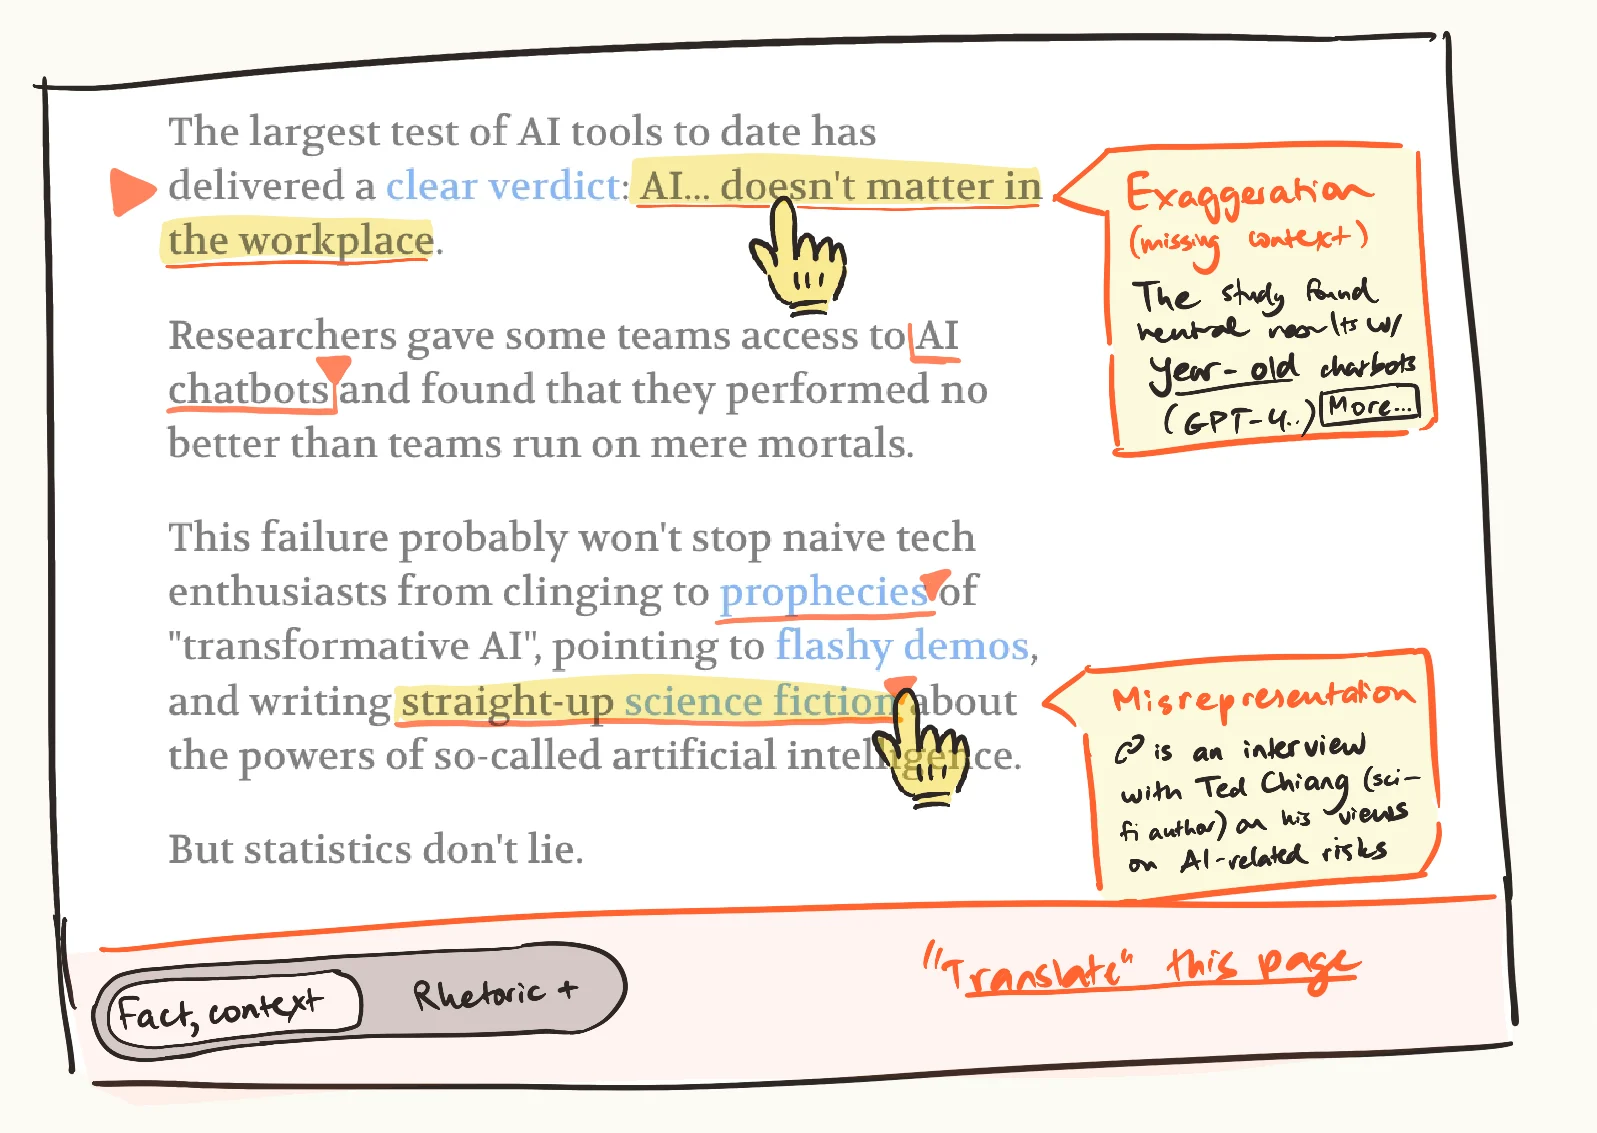 The largest test of AI tools to date has
delivered a clear verdict: AI... doesn't matter in
the workplace.
Researchers gave some teams access to AI
chatbots and found that they performed no
better than teams run on mere mortals.
This failure probably won't stop naive tech
enthusiasts from clinging to prophecies of
"transformative AI", pointing to flashy demos,
and writing straight-up science fiction about
the powers of so-called artificial intelligence.
But statistics don't lie.
Exaggeration
(missing context)
The study found
neutral results w/
year-old chatbots
(GPT-4..) More...
Misrepresentation
is an interview
with Ted Chiang (sci-
fi author) on his views
on AI-related risks
Fact, context
Rhetoric +
"Translate" this page